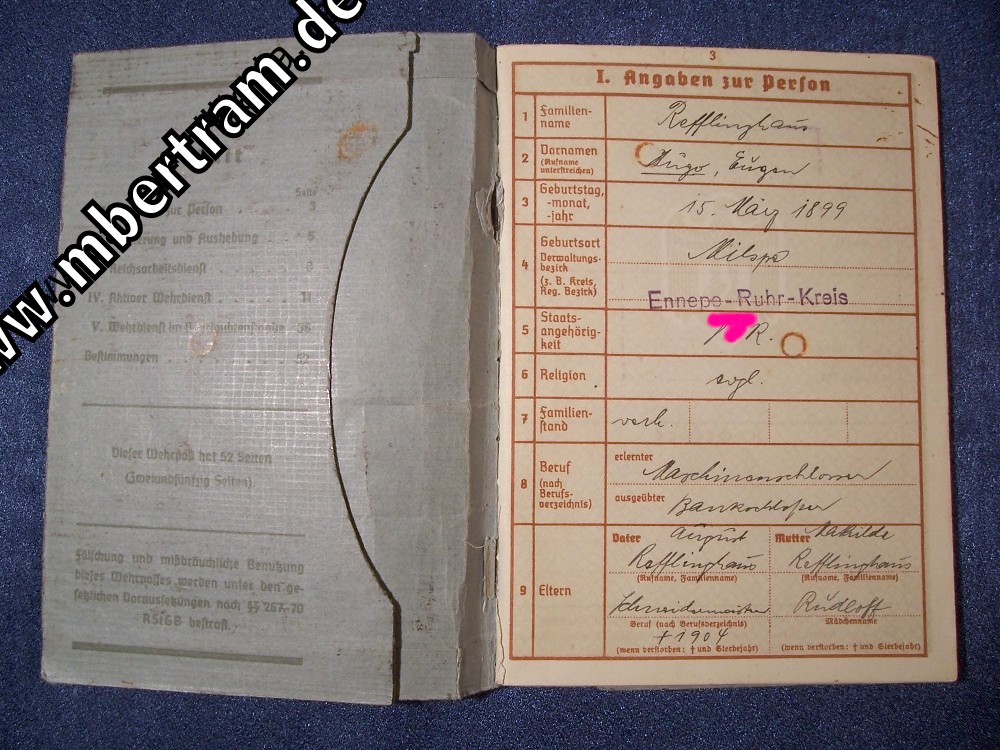 www.mbertram.de
Seite
zur Person . . . . 3
und Aushebung . . . 5
Reichsarbeitsdienst . . . 8
IV. Aktiver Wehrdienst . . . . . 11
V. Wehrdienst im
Bestimmungen . . . . 52
Dieser Wehrpaß hat 52 Seiten
(Zweiundfünfzig Seiten)
Fälschung und mißbräuchliche Benutzung
dieses Wehrpasses werden unter den ge-
setzlichen Voraussetzungen nach §§ 267, 70
RStGB bestraft.
3
I. Angaben zur Person
1 Familien-
name
Refflinghaus
2 Vornamen
(Rufname
unterstreichen)
Hugo, Eugen
3 Geburtstag,
-monat,
-jahr
15. März 1899
4 Geburtsort
Verwaltungs-
bezirk
(z. B. Kreis,
Reg. Bezirk)
Milspe
Ennepe-Ruhr-Kreis
5 Staats-
angehörig-
keit
R.
6 Religion
evgl.
7 Familien-
stand
verh.
8 Beruf
(nach
Berufs-
verzeichnis)
erlernter
Maschinenschlosser
ausgeübter
Bauschlosser
9 Eltern
Vater August
Refflinghaus
(Rufname, Familienname)
Schneidermeister
Beruf (nach Berufsverzeichnis)
† 1904
(wenn verstorben: † und Sterbejahr)
Mutter Mathilde
Refflinghaus
(Rufname, Familienname)
Rudloff
Mädchenname
(wenn verstorben: † und Sterbejahr)